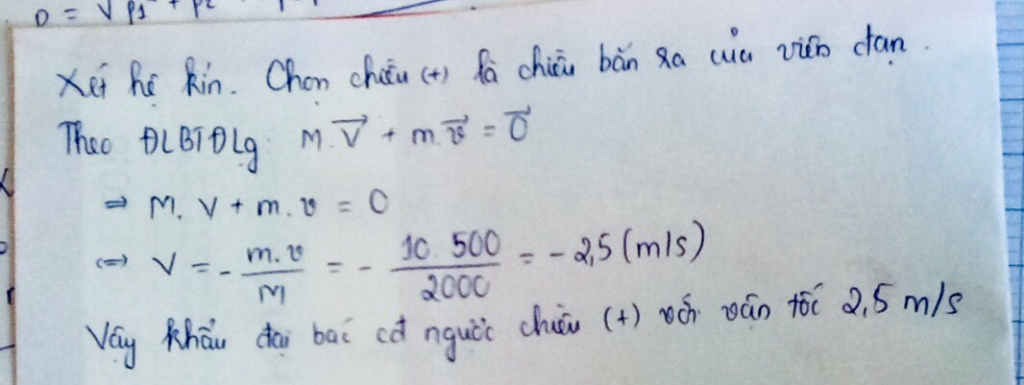 Xét hệ kín. Chọn chiều (+) là chiều bắn ra của viên đạn.
Theo ĐLBTĐLg: M.V⃗ + m.v⃗ = 0⃗
⇒ M. V + m. v = 0
⇔ V = - m.v/M = - 10.500/2000 = - 2,5 (m/s)
Vậy khẩu đại bác cđ ngược chiều (+) với vận tốc 2,5 m/s